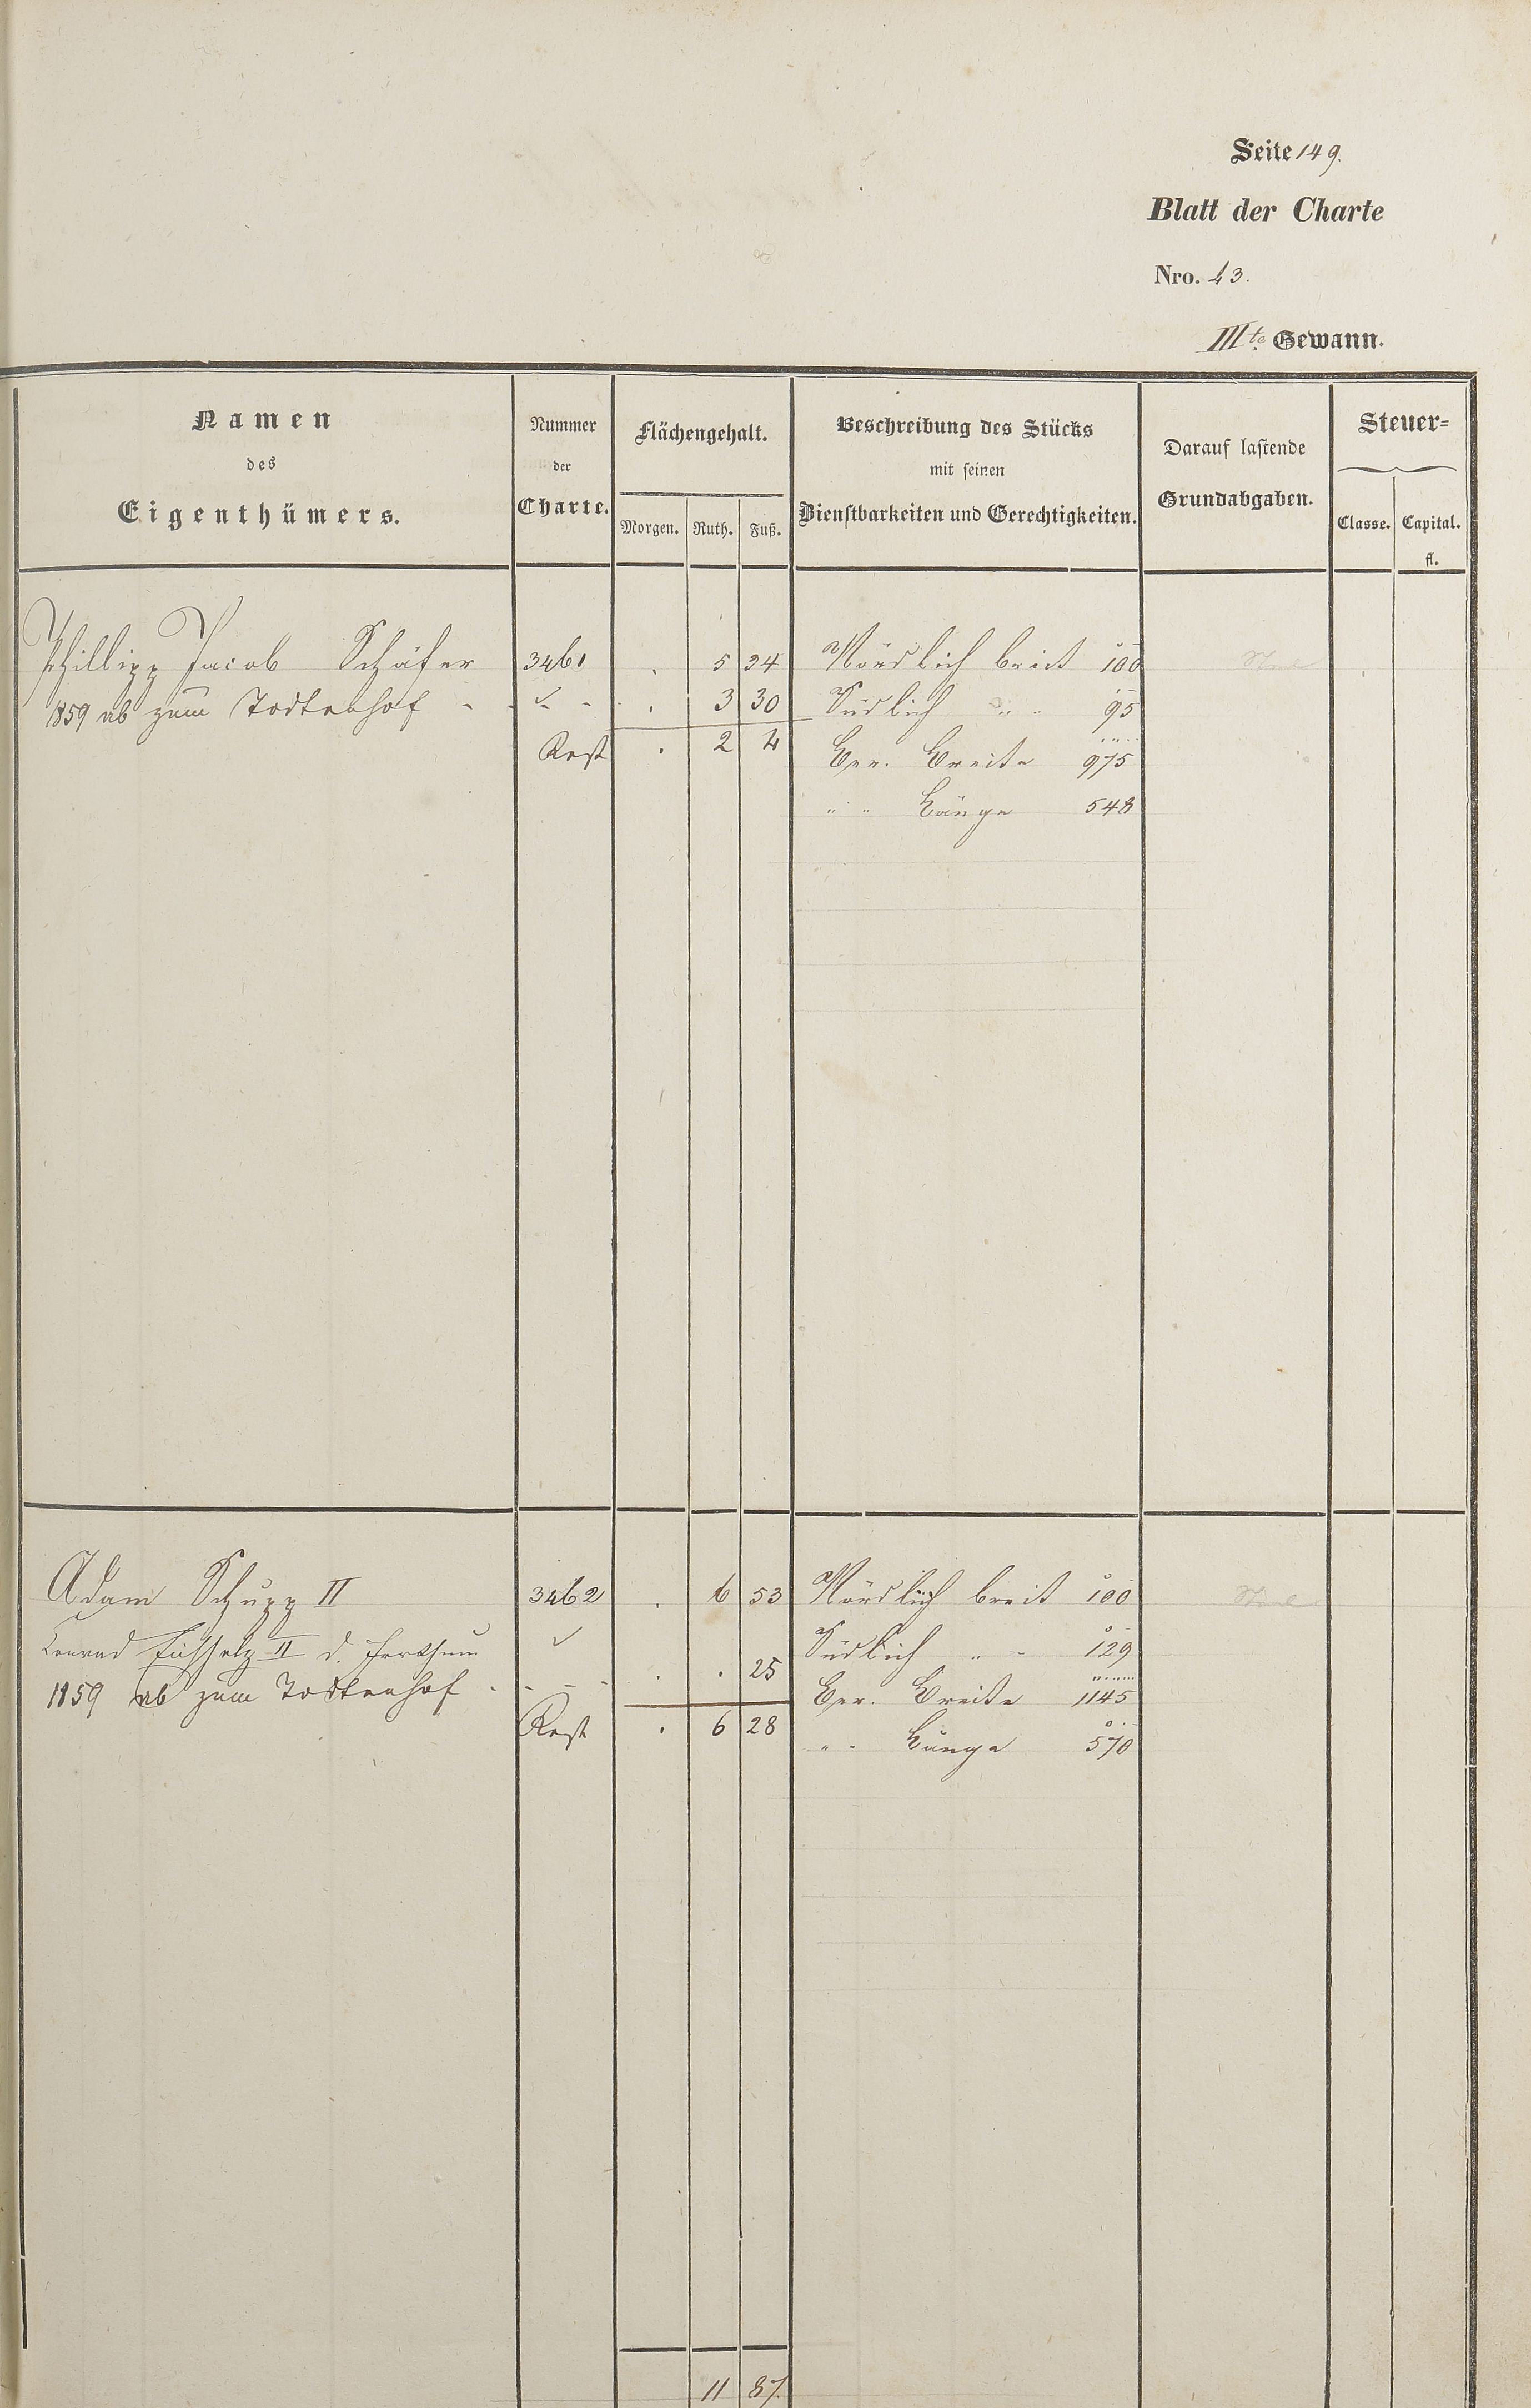 Seite 149.
Blatt der Charte
Nro. 43.
IIIte Gewann.
Namen des Eigenthümers.
Nummer der Charte.
Flächengehalt.
Morgen. Ruth. Fuß.
Beschreibung des Stücks mit seinen Dienstbarkeiten und Gerechtigkeiten.
Darauf lastende Grundabgaben.
Steuer=
Classe. Capital. fl.
Phillipp Jacob Schäfer 3461 . 5 34 Nördlich breit 100
1859 ab zum Todtenhof - - - . 3 30 Südlich " " 95
Rest . 2 4 Ger. Breite 975
" " Länge 548
Adam Schupp II 3462 . 6 53 Nördlich breit 100
Conrad II d. Südlich " " 129
1859 ab zum Todtenhof - - - - . . 25 Ger. Breite 1145
Rest . 6 28 " " Länge 570
11 87